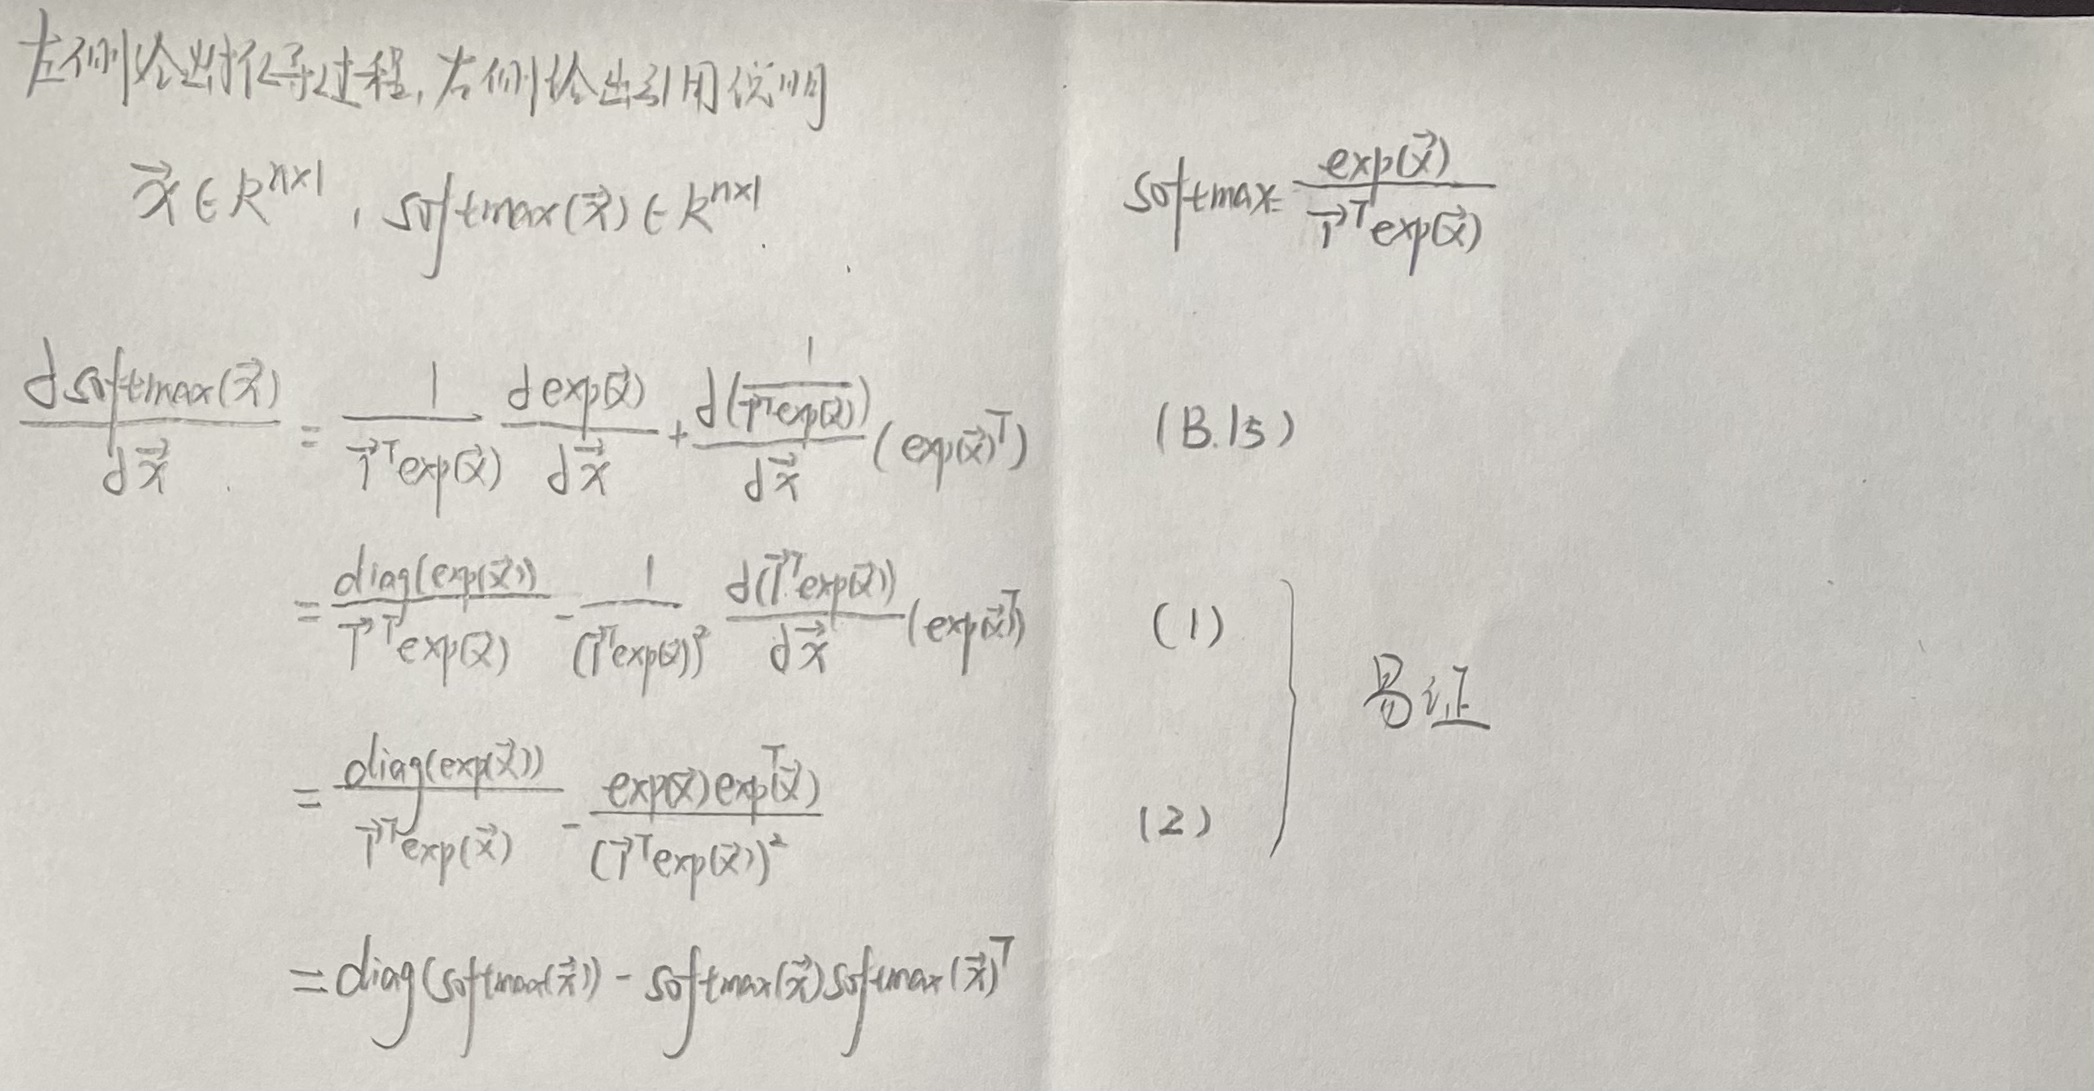 左侧给出推导过程，右侧给出引用说明
x⃗ ∈ R^{n×1}, softmax(x⃗) ∈ R^{n×1}.
softmax = exp(x⃗) / (1⃗^T exp(x⃗))
d softmax(x⃗) / d x⃗ = 1 / (1⃗^T exp(x⃗)) · d exp(x⃗) / d x⃗ + d(1 / (1⃗^T exp(x⃗))) / d x⃗ (exp(x⃗)^T) (B.15)
= diag(exp(x⃗)) / (1⃗^T exp(x⃗)) - 1 / (1⃗^T exp(x⃗))^2 · d(1⃗^T exp(x⃗)) / d x⃗ (exp(x⃗)^T) (1)
易证
= diag(exp(x⃗)) / (1⃗^T exp(x⃗)) - exp(x⃗) exp^T(x⃗) / (1⃗^T exp(x⃗))^2 (2)
= diag(softmax(x⃗)) - softmax(x⃗) softmax(x⃗)^T